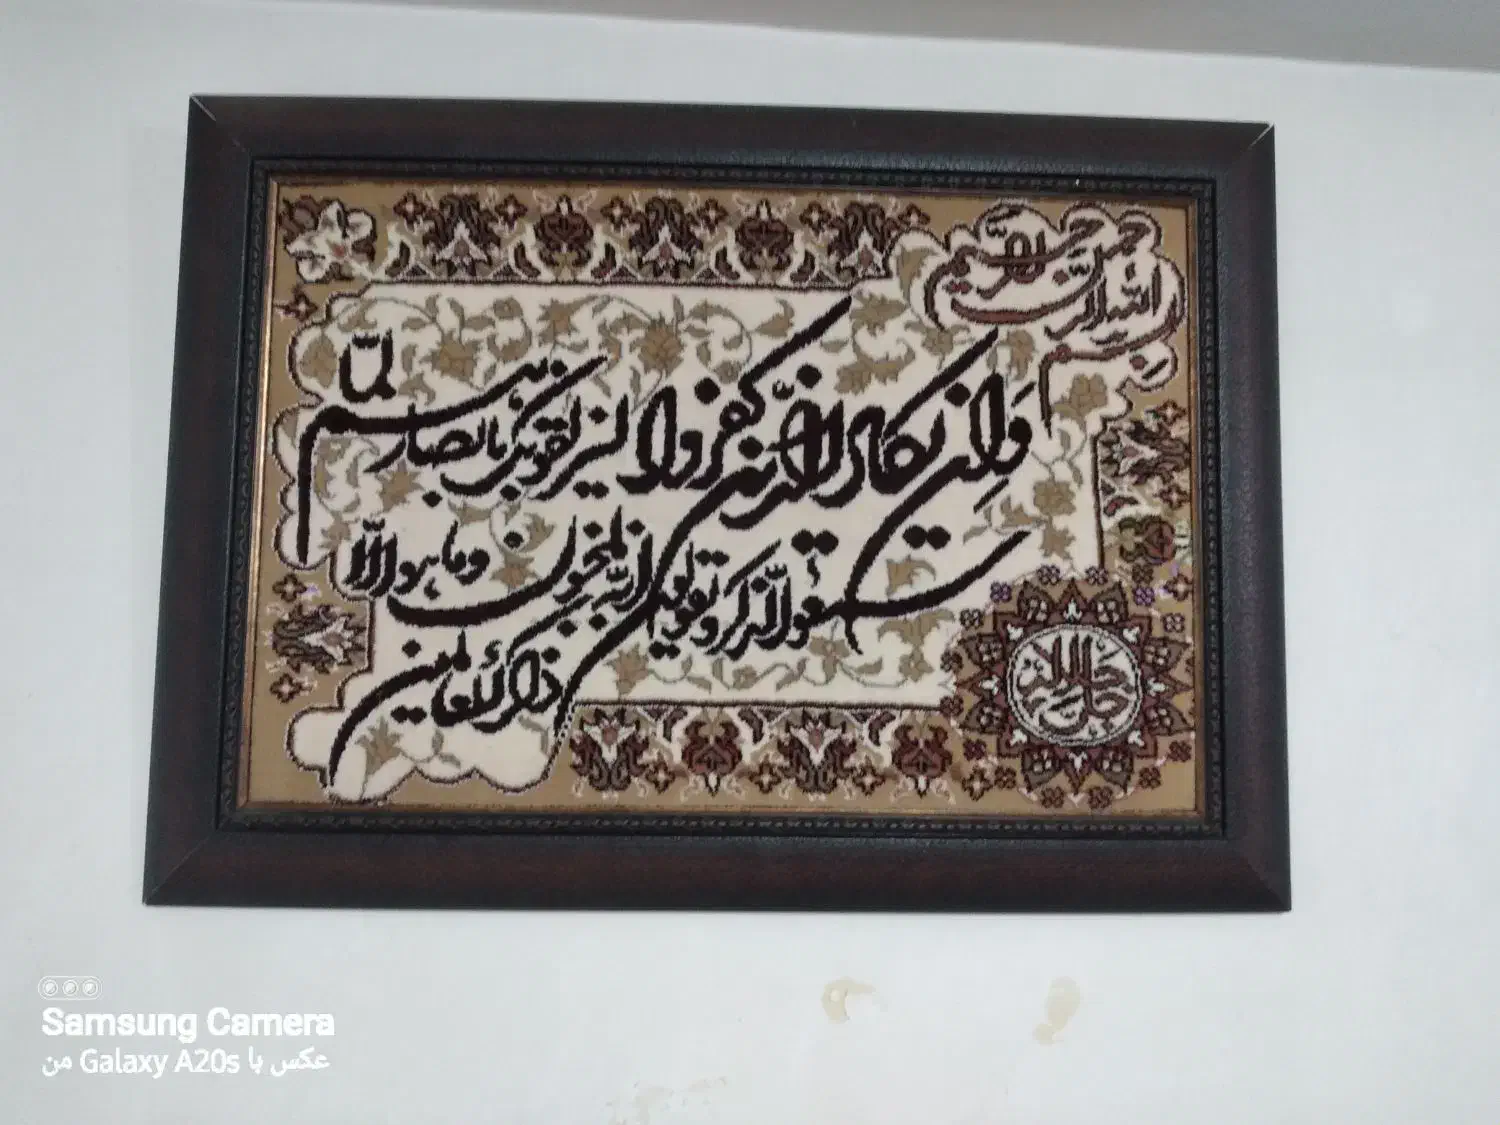 بسم الله الرحمن الرحیم
وَاِن یکاد الذین کفروا لیزلقونک بابصارهم لمّا
سمعوا الذکر و یقولون انه لمجنون و ما هو الّا
ذکر للعالمین
جل جلاله
Samsung Camera
عکس با Galaxy A20s من